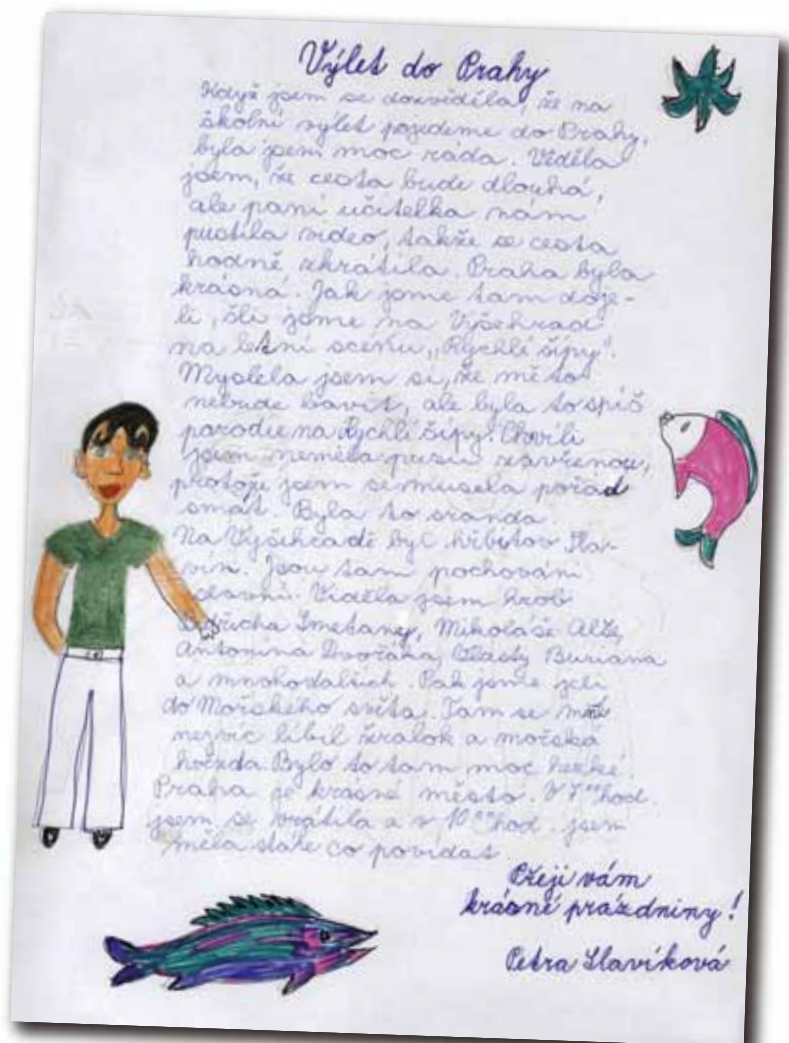 Výlet do Prahy
Když jsem se dozvěděla, že na
školní výlet pojedeme do Prahy,
byla jsem moc ráda. Věděla
jsem, že cesta bude dlouhá,
ale paní učitelka nám
pustila video, takže se cesta
hodně zkrátila. Praha byla
krásná. Jak jsme tam doje-
li, šli jsme na Vyšehrad
na letní scénu „Rychlé šípy".
Myslela jsem si, že mě to
nebude bavit, ale byla to spíš
parodie na Rychlé šípy. Chvíli
jsem neměla pusu zavřenou,
protože jsem se musela pořád
smát. Byla to sranda.
Na Vyšehradě byl hřbitov Sla-
vín. Jsou tam pochováni
slavní. Viděla jsem hrob
Bedřicha Smetany, Mikoláše Alše,
Antonína Dvořáka, Vlasty Buriana
a mnoho dalších. Pak jsme jeli
do Mořského světa. Tam se mně
nejvíc líbil žralok a mořská
hvězda. Bylo to tam moc hezké.
Praha je krásné město. V 7⁰⁰ hod.
jsem se vrátila a v 10⁰⁰ hod. jsem
měla stále co povídat.
Přeji vám
krásné prázdniny!
Petra Slavíková